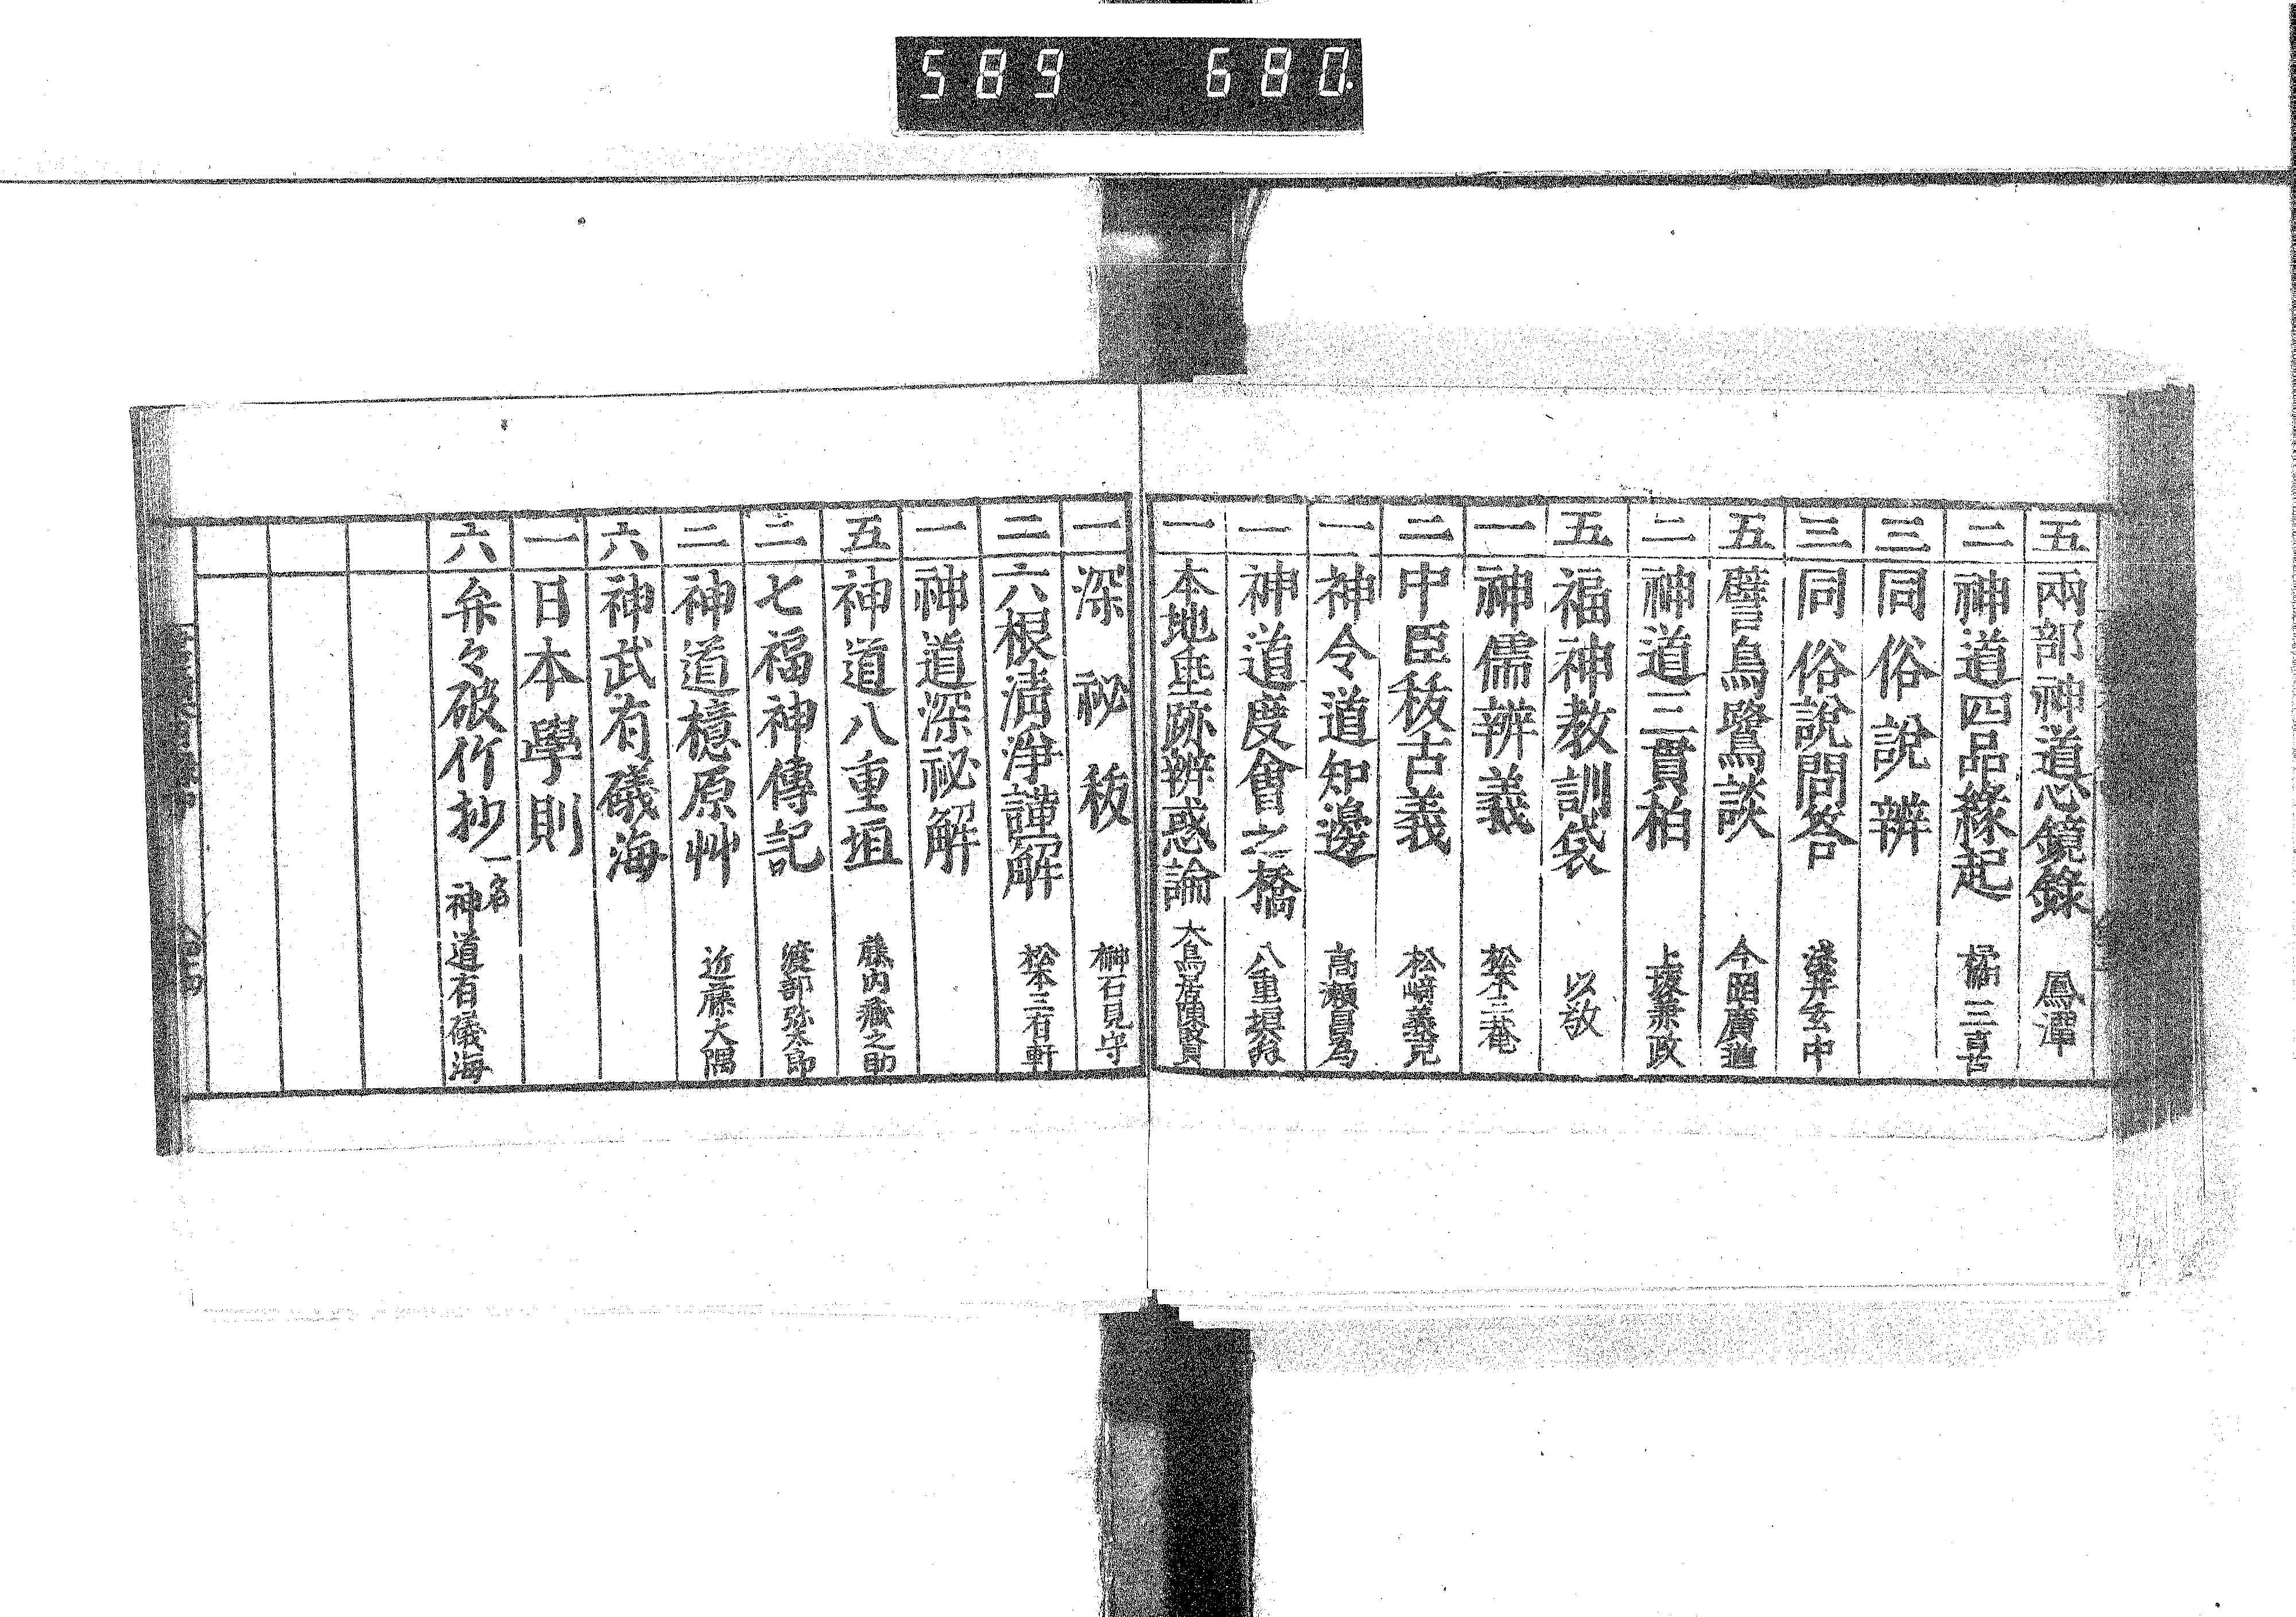 589 680.
五 兩部神道心鏡錄 鳳潭
二 神道四品緣起 橘三喜
三 同俗說辨
三 同俗說問答
五 譬烏鷺談 今図廣通
二 神道三貫柏 上坂兼政
五 福神教訓袋 以敬
一 神儒辨義 松本三菴
二 中臣秡古義 松﨑義克
一 神令道知邊 高瀬昌為
一 神道度會之橋 八重垣翁
一 本地垂跡辨惑論 大鳥居陳賢
一 深祕秡 榊石見守
二 六根清淨謹解 松本三右軒
一 神道深祕解
五 神道八重垣
二 七福神傳記 渡部弥太郎
二 神道檍原艸 近藤大隅
六 神武有礒海
一 日本學則
六 弁々破竹抄 一名神道有礒海